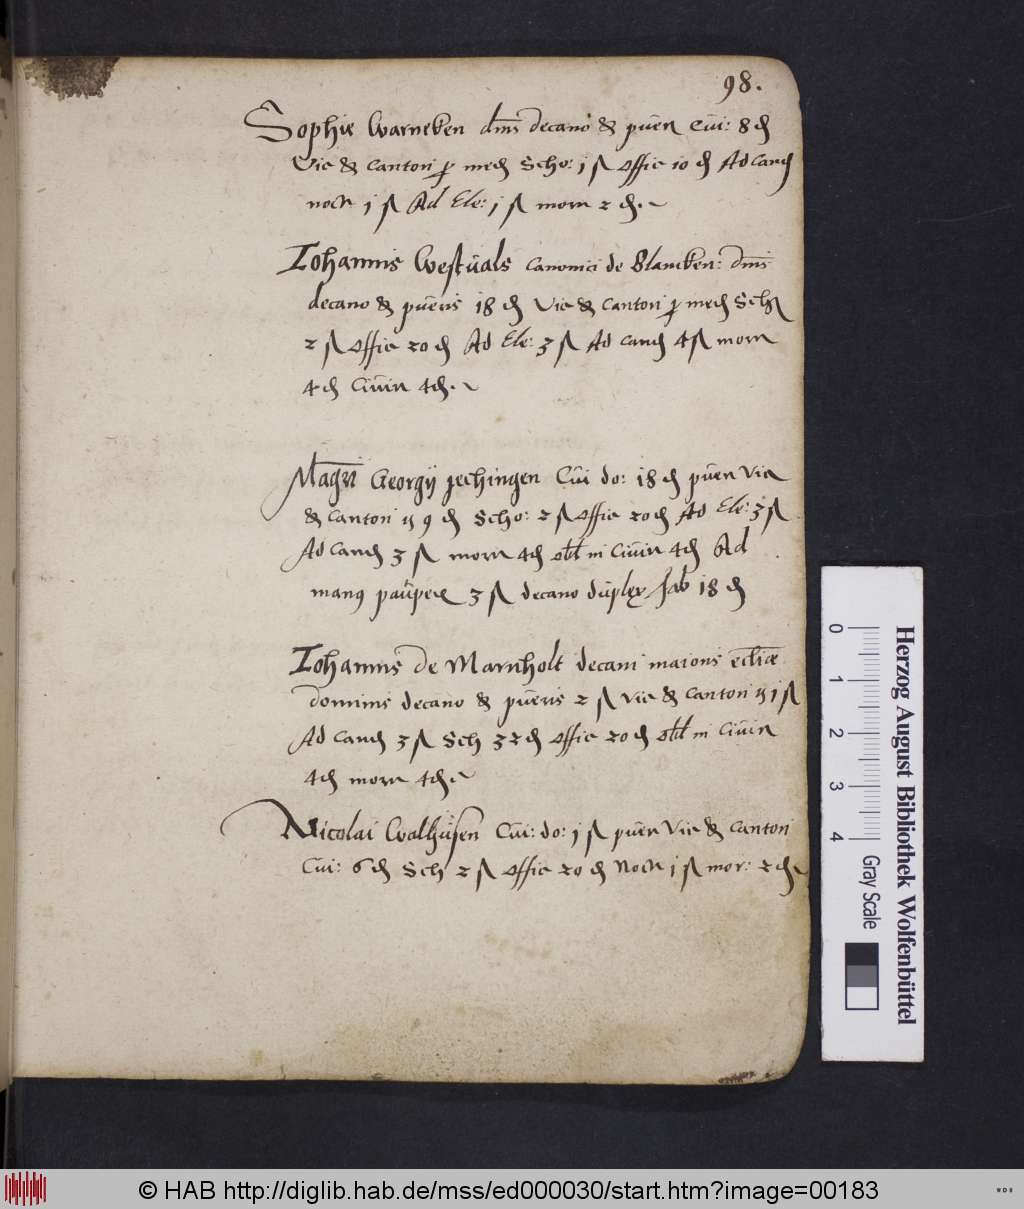 98.
Sophie Warneken dnis decano & pueri Cui: 8 d
Vic & Cantori p med Scho: 1 ß Offic 10 d Ad Cand
noct 1 ß Ad Ele: 1 ß morn 2 d.
Iohannis Westuals Canonici de Blancken: dnis
decano & pueris 18 d Vic & Cantori p med Sch
2 ß Offic 20 d Ad Ele: 3 ß Ad Cand 4 ß morn
4 d Ciuin 4 d.
Magri Georgij Jechingen Cui do: 18 d pueri Vic
& Cantori 9 d Scho: 2 ß Offic 20 d Ad Ele: 3 ß
Ad Cand 3 ß morn 4 d obl in Ciuin 4 d Ad
man9 pauper 3 ß decano duplex fab 18 d
Iohannis De Marnholt decani maioris eccliæ
dominis decano & pueris 2 ß Vic & Cantori 1 ß
Ad Cand 3 ß Sch 32 d Offic 20 d obl in Ciuin
4 d morn 4 d
Nicolai Walhusen Cui: do: 1 ß pueri Vic & Cantori
Cui: 6 d Sch 2 ß Offic 20 d Noct 1 ß mor: 2 d
Herzog August Bibliothek Wolfenbüttel
0 1 2 3 4 Gray Scale
© HAB http://diglib.hab.de/mss/ed000030/start.htm?image=00183